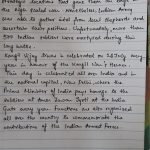 strategic locations that gave them an edge in
the high peaked war. Nonetheless, Indian Army
was able to gather intel from local shepherds and
uncertain radio positions. Unfortunately, more than
500 Indian soldiers were martyred during this
long battle.
Kargil Vijay Diwas is celebrated on 26 July every
year in honour of the Kargil War's Heroes.
This day is celebrated all over India and in
the national capital, New Delhi, where the
Prime Minister of India pays homage to the
soldiers at Amar Jawan Jyoti at the India
Gate every year. Functions are also organized
all over the country to commemorate the
contributions of the Indian Armed Forces.